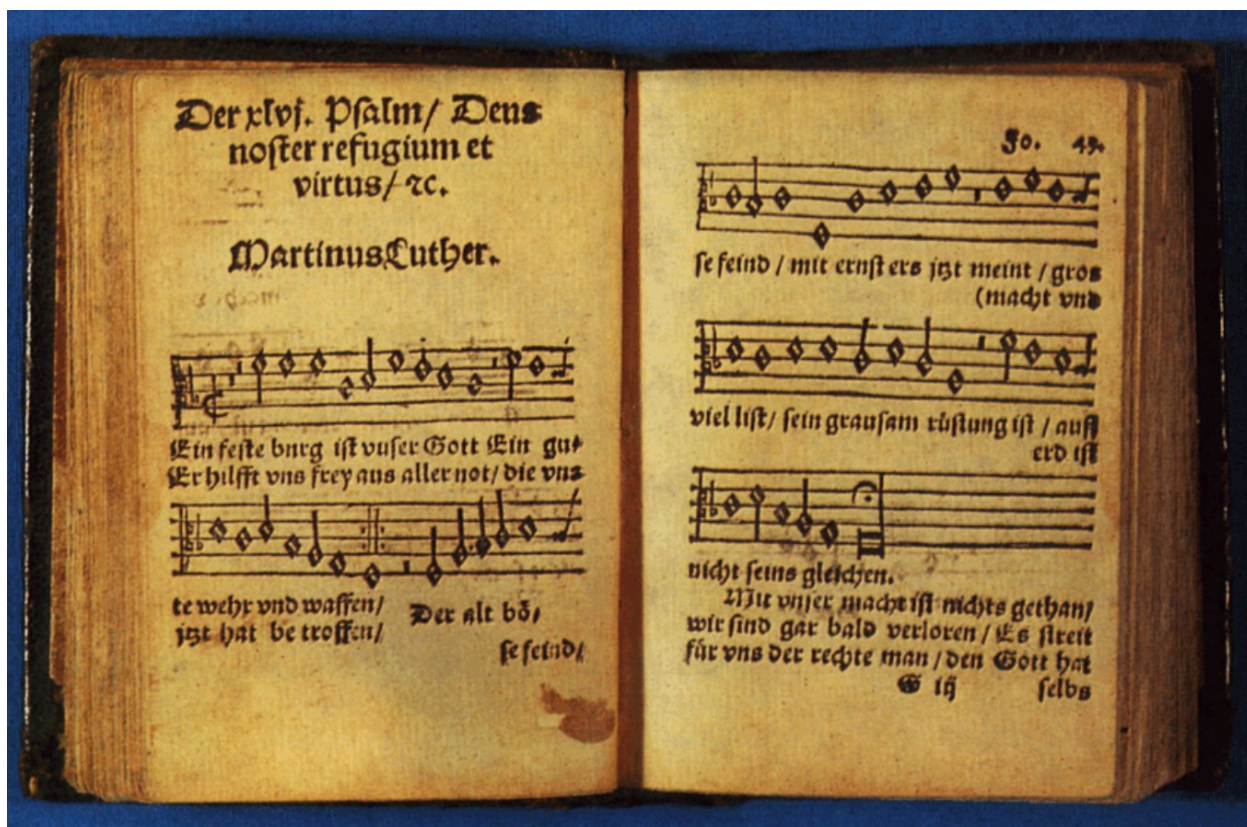 Der xlvj. Psalm/ Deus
noster refugium et
virtus/ ⁊c.
Martinus Luther.
Ein feste bnrg ist vnser Gott Ein gu⸗
Er hilfft vns frey aus aller not/ die vns
te wehr vnd waffen/ Der alt bö⸗
jtzt hat be troffen/
se feind/
Fo. 43.
se feind / mit ernst ers jtzt meint / gros
(macht vnd
viel list/ sein grausam rüstung ist / auff
erd ist
nicht seins gleichen.
Mit vnser macht ist nichts gethan/
wir sind gar bald verloren / Es streit
für vns der rechte man / den Gott hat
G iij selbs